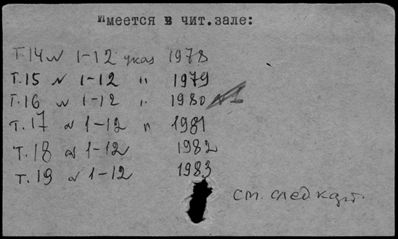 имеется в чит.зале:
Т.14 N 1-12 указ 1978
Т.15 N 1-12 " 1979
Т.16 N 1-12 " 1980
Т.17 N 1-12 " 1981
Т.18 N 1-12 1982
Т.19 N 1-12 1983
см. след карт.